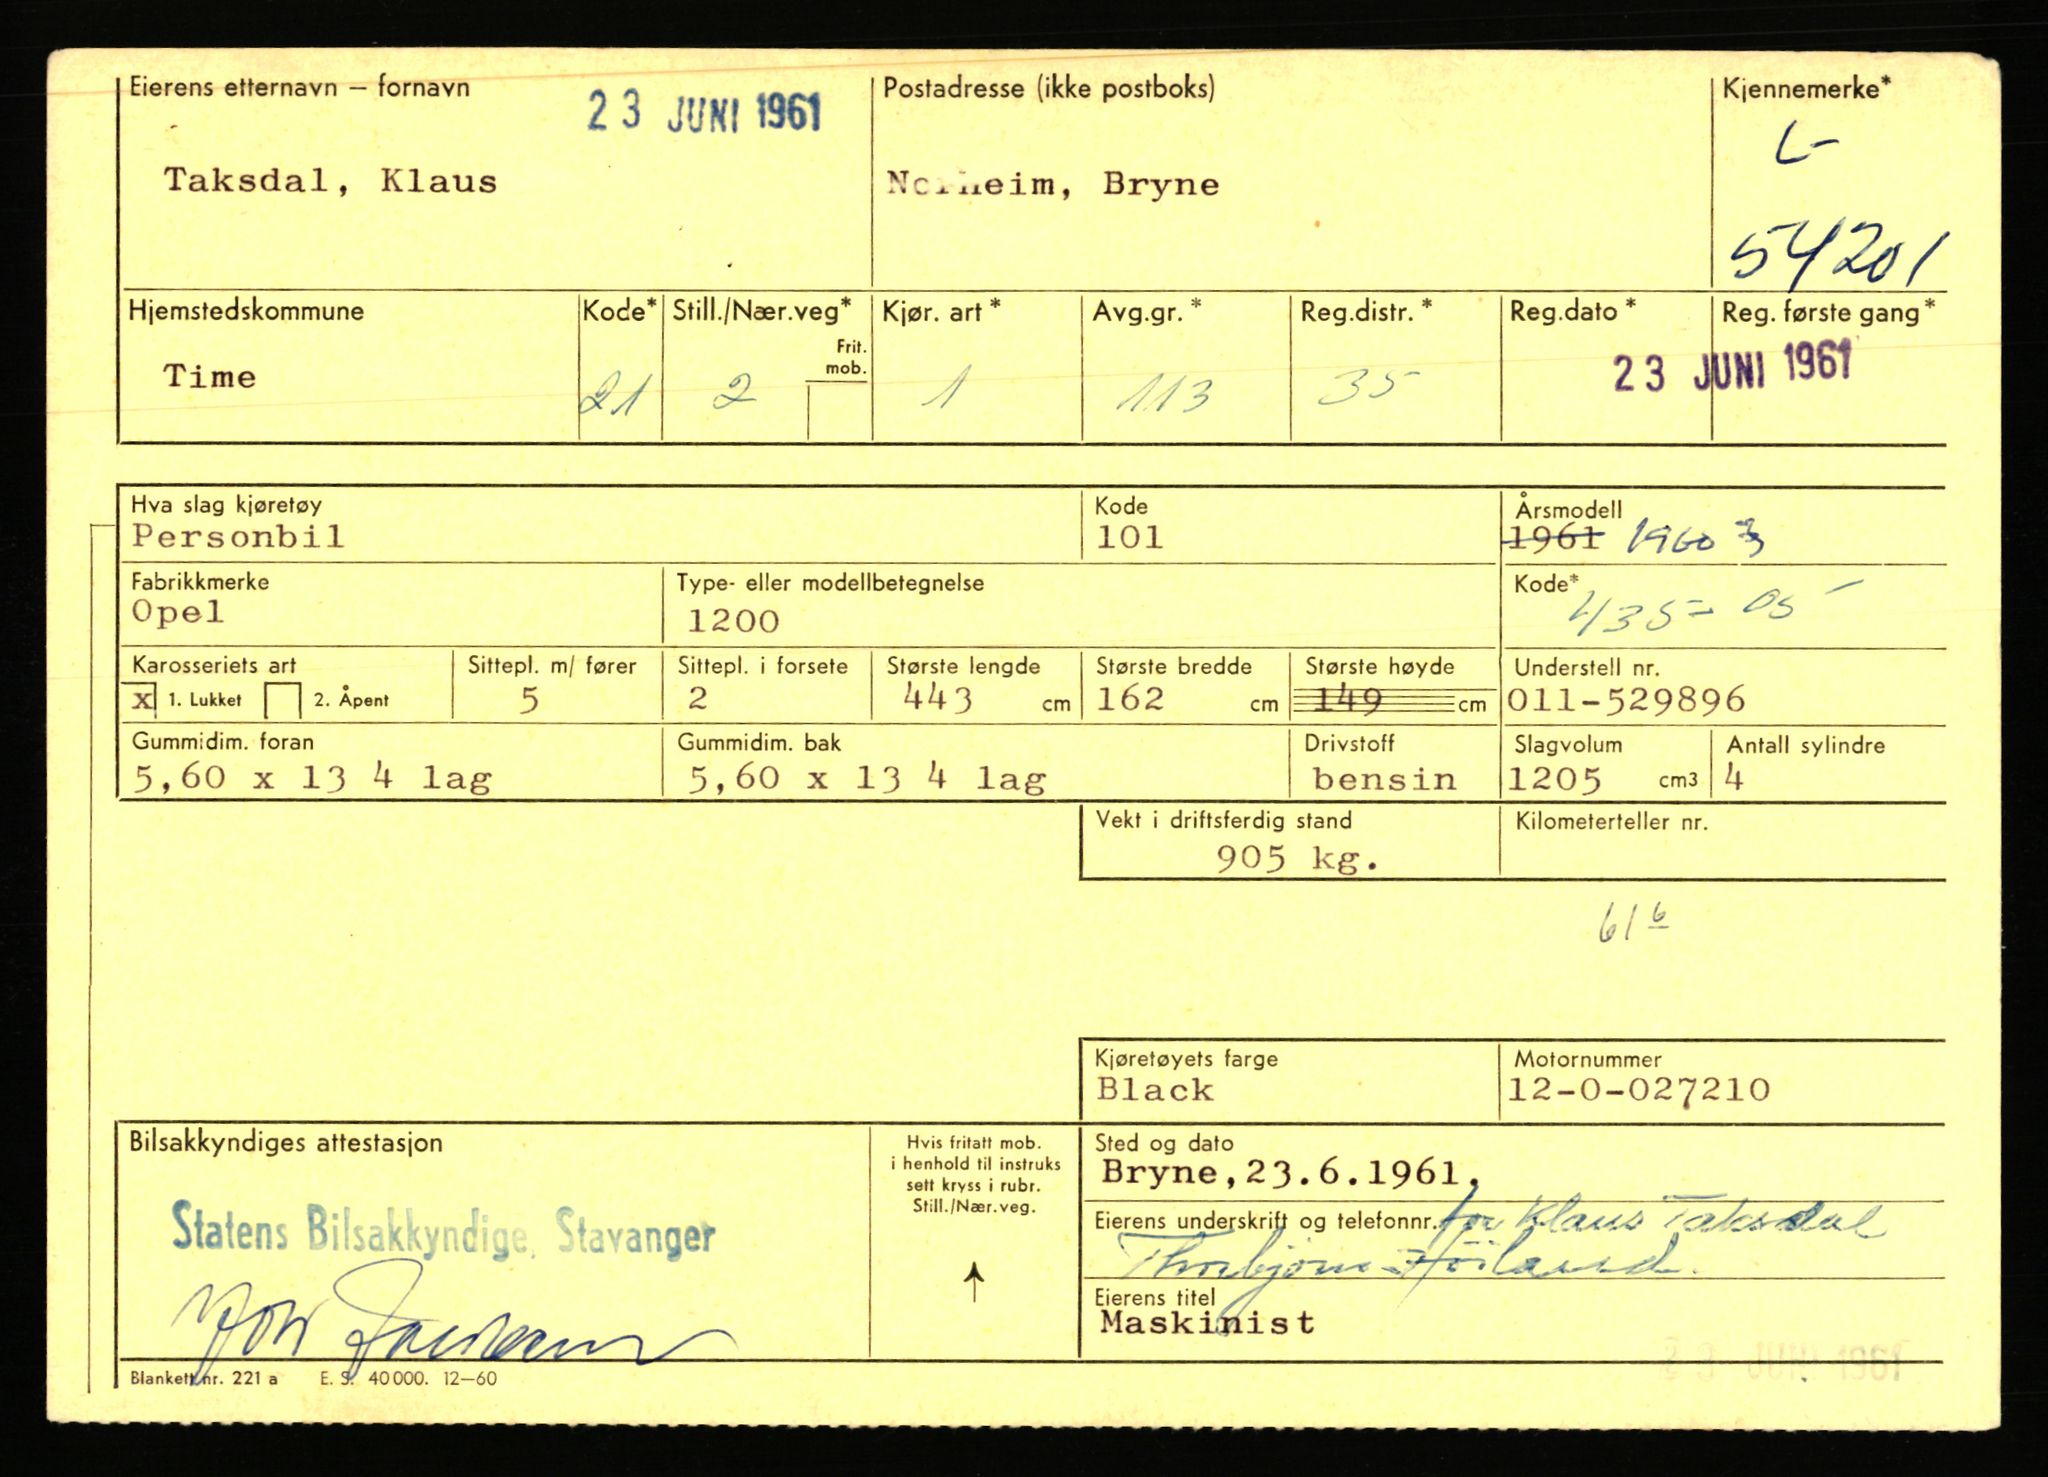 Eierens etternavn – fornavn
23 JUNI 1961
Postadresse (ikke postboks)
Kjennemerke*
L-
Taksdal, Klaus
Norheim, Bryne
54201
Hjemstedskommune
Kode*
Still./Nær.veg*
Kjør. art *
Avg.gr. *
Reg.distr. *
Reg.dato *
Reg. første gang*
Frit.
mob.
Time
21
2
1
113
35
23 JUNI 1961
Hva slag kjøretøy
Kode
Årsmodell
Personbil
101
1961 1960
Fabrikkmerke
Type- eller modellbetegnelse
Kode*
Opel
1200
435- 05
Karosseriets art
Sittepl. m/ fører
Sittepl. i forsete
Største lengde
Største bredde
Største høyde
Understell nr.
x 1. Lukket 2. Åpent
5
2
443 cm
162 cm
149 cm
011-529896
Gummidim. foran
Gummidim. bak
Drivstoff
Slagvolum
Antall sylindre
5,60 x 13 4 lag
5,60 x 13 4 lag
bensin
1205 cm3
4
Vekt i driftsferdig stand
Kilometerteller nr.
905 kg.
61 6
Kjøretøyets farge
Motornummer
Black
12-0-027210
Bilsakkyndiges attestasjon
Hvis fritatt mob.
i henhold til instruks
sett kryss i rubr.
Still./Nær.veg.
Sted og dato
Bryne,23.6.1961.
Statens Bilsakkyndige, Stavanger
Eierens underskrift og telefonnr. for Klaus Taksdal
Thorbjørn Höiland.
Eierens titel
Maskinist
Blankett nr. 221 a E. S. 40 000. 12–60